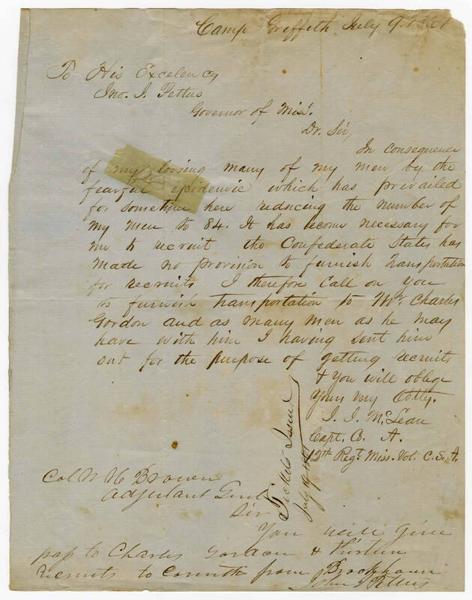 Camp Griffith July 9, 1861
To His Excelency
Jno. J. Pettus
Governor of Miss.
Dr. Sir,
In consequence
of my losing many of my men by the
fearful epidemic which has prevailed
for sometime here reducing the number of
my men to 84. It has become necessary for
me to recruit the Confederate States has
made no provision to furnish Transportation
for recruits I therefore Call on you
to furnish Transportation to Mr Charles
Gordon and as many men as he may
have with him I having sent him
out for the purpose of getting recruits
& you will oblige
Yours my
J. J. McLean
Capt. Co. A.
12th Regt. Miss. Vol. C.S.A.
Tickets Issued
July
Col W H Brown
Adjutant Genl
Sir
You will give
pass to Charles Gordon &
recruits to Corinth from Brookhaven
John J Pettus